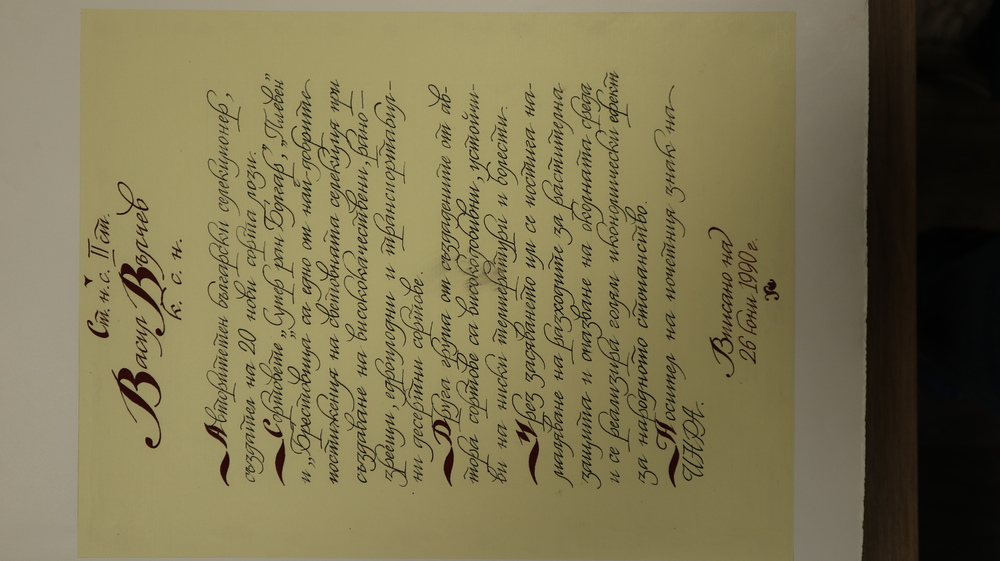 Ст. н. с. II ст.
Васил Вълчев
к. с. н.
Авторитетен български селекционер,
създател на 20 нови сорта лози.
Сортовете „Супер ран Болгар“, „Плевен“
и „Брестовица“ са едно от най-добрите
постижения на световната селекция при
създаване на висококачествени, рано-
зреещи, едроплодни и транспортабил-
ни десертни сортове.
Друга група от създадените от ав-
тора сортове са високодобивни, устойчи-
ви на ниски температури и болести.
Чрез засяването им се постига на-
маляване на разходите за растителна
защита и опазване на околната среда
и се реализира голям икономически ефект
за народното стопанство.
Носител на почетния знак на
ИНРА.
Вписано на
26 юни 1990 г.